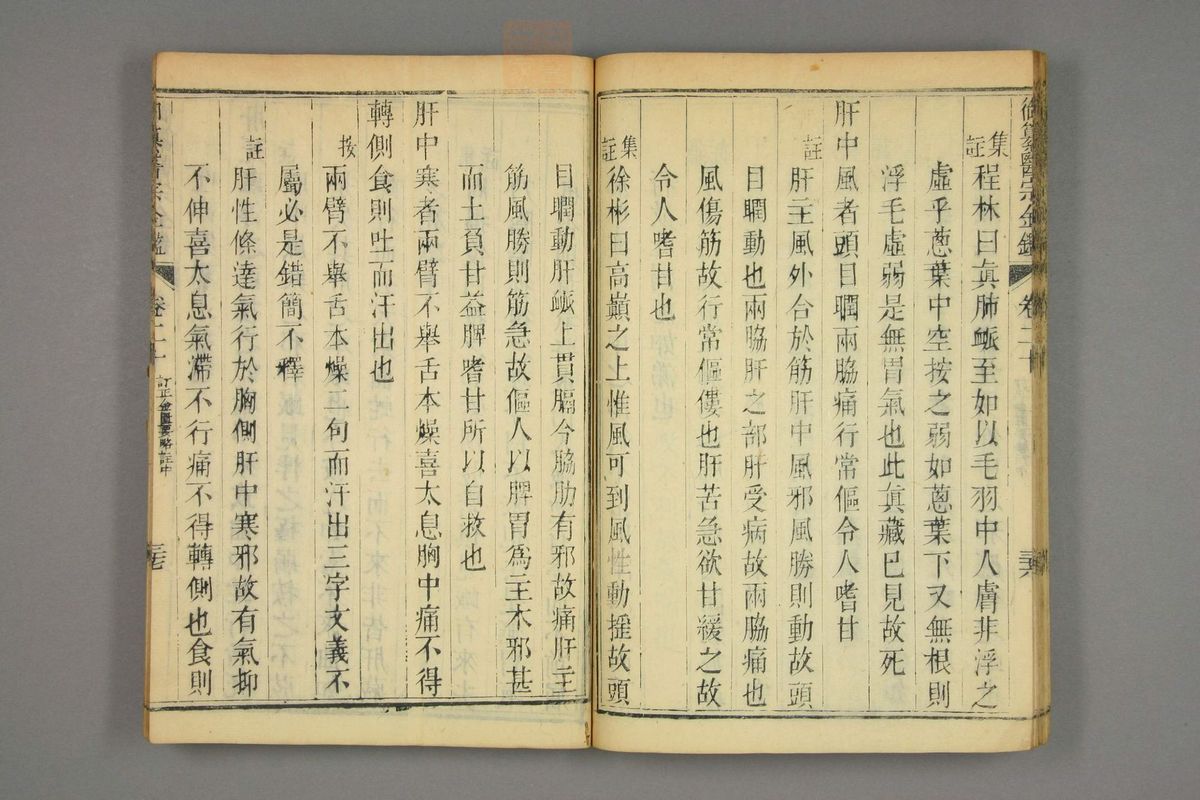 御纂醫宗金鑑 卷二十
集註 程林曰眞肺䘑至如以毛羽中人膚非浮之
虛乎蔥葉中空按之弱如蔥葉下又無根則
浮毛虛弱是無胃氣也此眞藏巳見故死
肝中風者頭目瞤兩脇痛行常傴令人嗜甘
註 肝主風外合於筋肝中風邪風勝則動故頭
目瞤動也兩脇肝之部肝受病故兩脇痛也
風傷筋故行常傴僂也肝苦急欲甘緩之故
令人嗜甘也
集註 徐彬曰高巔之上惟風可到風性動搖故頭
目瞤動肝䘑上貫膈今脇肋有邪故痛肝主
筋風勝則筋急故傴人以脾胃爲主木邪甚
而土負甘益脾嗜甘所以自救也
肝中寒者兩臂不舉舌本燥喜太息胸中痛不得
轉側食則吐而汗出也
按 兩臂不舉舌本燥二句而汗出三字文義不
屬必是錯簡不釋
註 肝性條達氣行於胸側肝中寒邪故有氣抑
不伸喜太息氣滯不行痛不得轉側也食則
纂醫宗金鑑 卷二十 訂正金匱要略註中